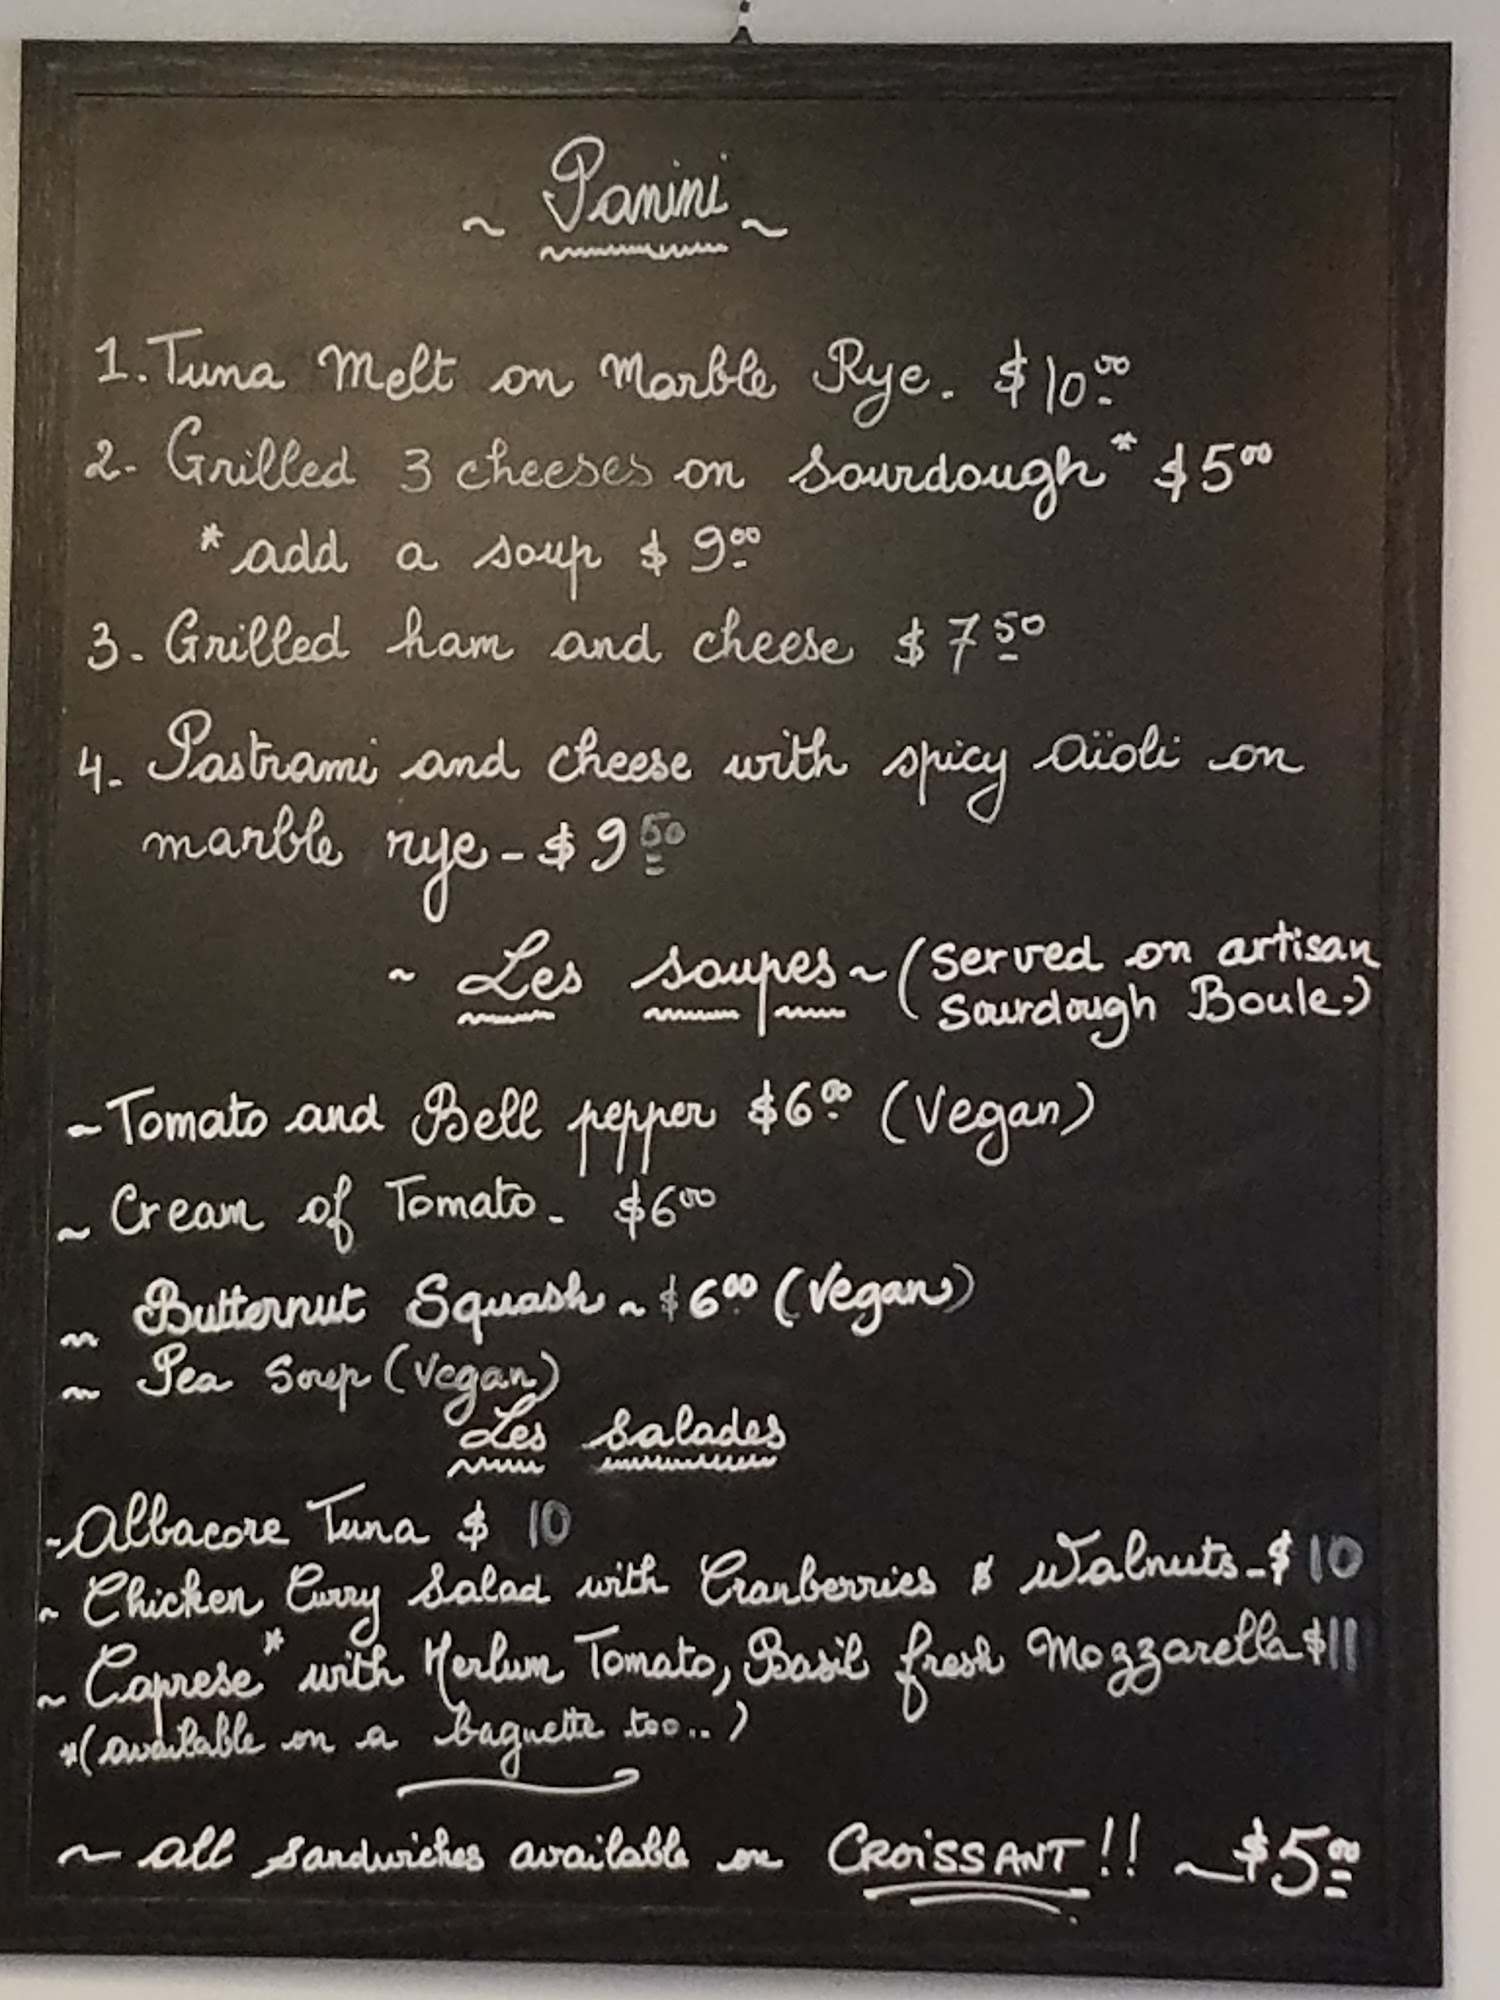 ~ Panini ~
1. Tuna Melt on Marble Rye. $10.00
2- Grilled 3 cheeses on Sourdough* $5.00
*add a soup $ 9.00
3- Grilled ham and cheese $ 7.50
4- Pastrami and cheese with spicy aïoli on
marble rye - $ 9.50
~ Les soupes ~ (Served on artisan
Sourdough Boule.)
~ Tomato and Bell pepper $6.00 (Vegan)
~ Cream of Tomato - $6.00
~ Butternut Squash ~ $6.00 (Vegan)
~ Pea Soup (Vegan)
Les Salades
- Albacore Tuna $ 10
~ Chicken Curry Salad with Cranberries & Walnuts - $10
~ Caprese* with Herlum Tomato, Basil fresh Mozzarella $11
*(available on a baguette too..)
~ all Sandwiches available on CROISSANT!! ~ $5.00